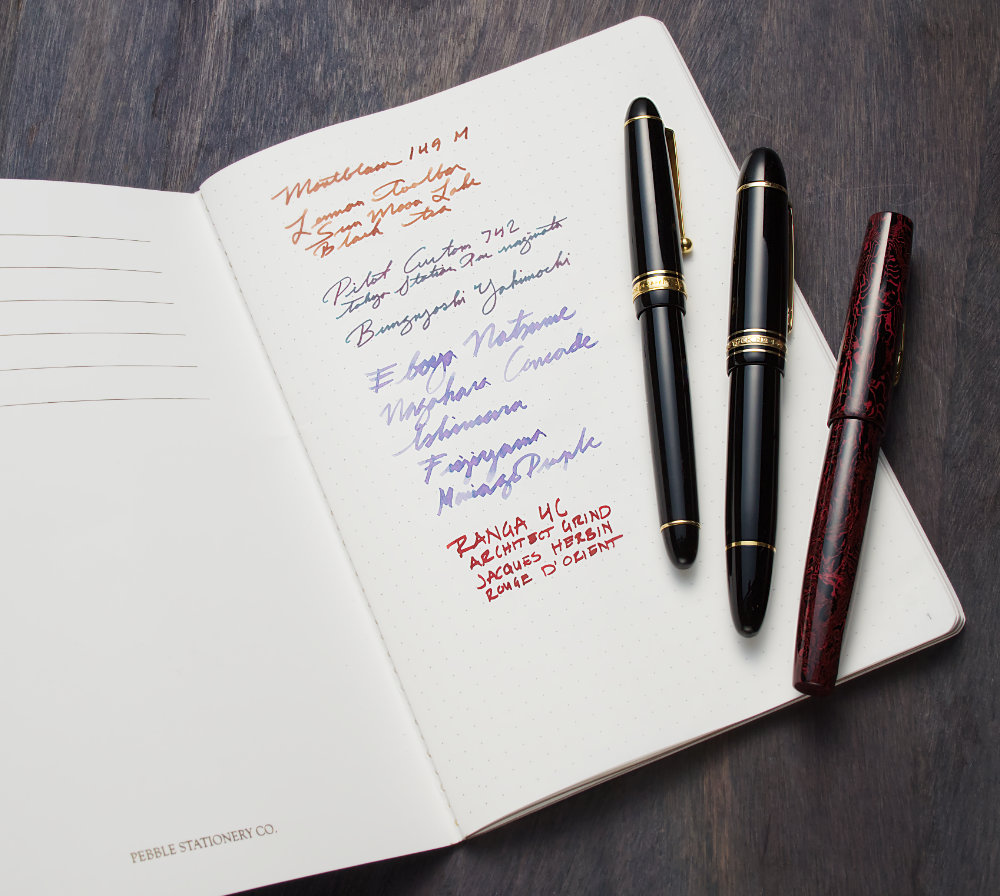 Montblanc 149 M
Lennon Toolbar
Sun Moon Lake
Black tea
Pilot Custom 742
Tokyo Station Pen naginata
Bungujoshi Yakimochi
Eboya Natsume
Nagahara Concorde
Fujiyama
Purple
RANGA 4C
ARCHITECT GRIND
JACQUES HERBIN
ROUGE D'ORIENT
PEBBLE STATIONERY CO.